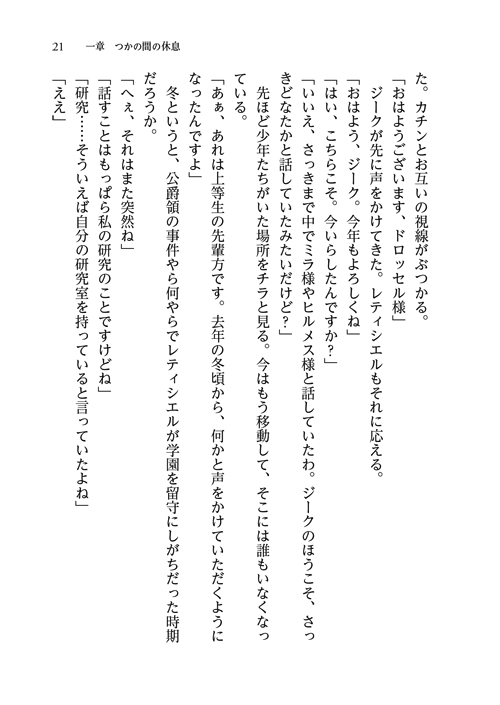 21　一章　つかの間の休息
た。カチンとお互いの視線がぶつかる。
「おはようございます、ドロッセル様」
　ジークが先に声をかけてきた。レティシエルもそれに応える。
「おはよう、ジーク。今年もよろしくね」
「はい、こちらこそ。今いらしたんですか？」
「いいえ、さっきまで中でミラ様やヒルメス様と話していたわ。ジークのほうこそ、さっ
きどなたかと話していたみたいだけど？」
　先ほど少年たちがいた場所をチラと見る。今はもう移動して、そこには誰もいなくなっ
ている。
「あぁ、あれは上等生の先輩方です。去年の冬頃から、何かと声をかけていただくように
なったんですよ」
　冬というと、公爵領の事件やら何やらでレティシエルが学園を留守にしがちだった時期
だろうか。
「へぇ、それはまた突然ね」
「話すことはもっぱら私の研究のことですけどね」
「研究……そういえば自分の研究室を持っていると言っていたよね」
「ええ」